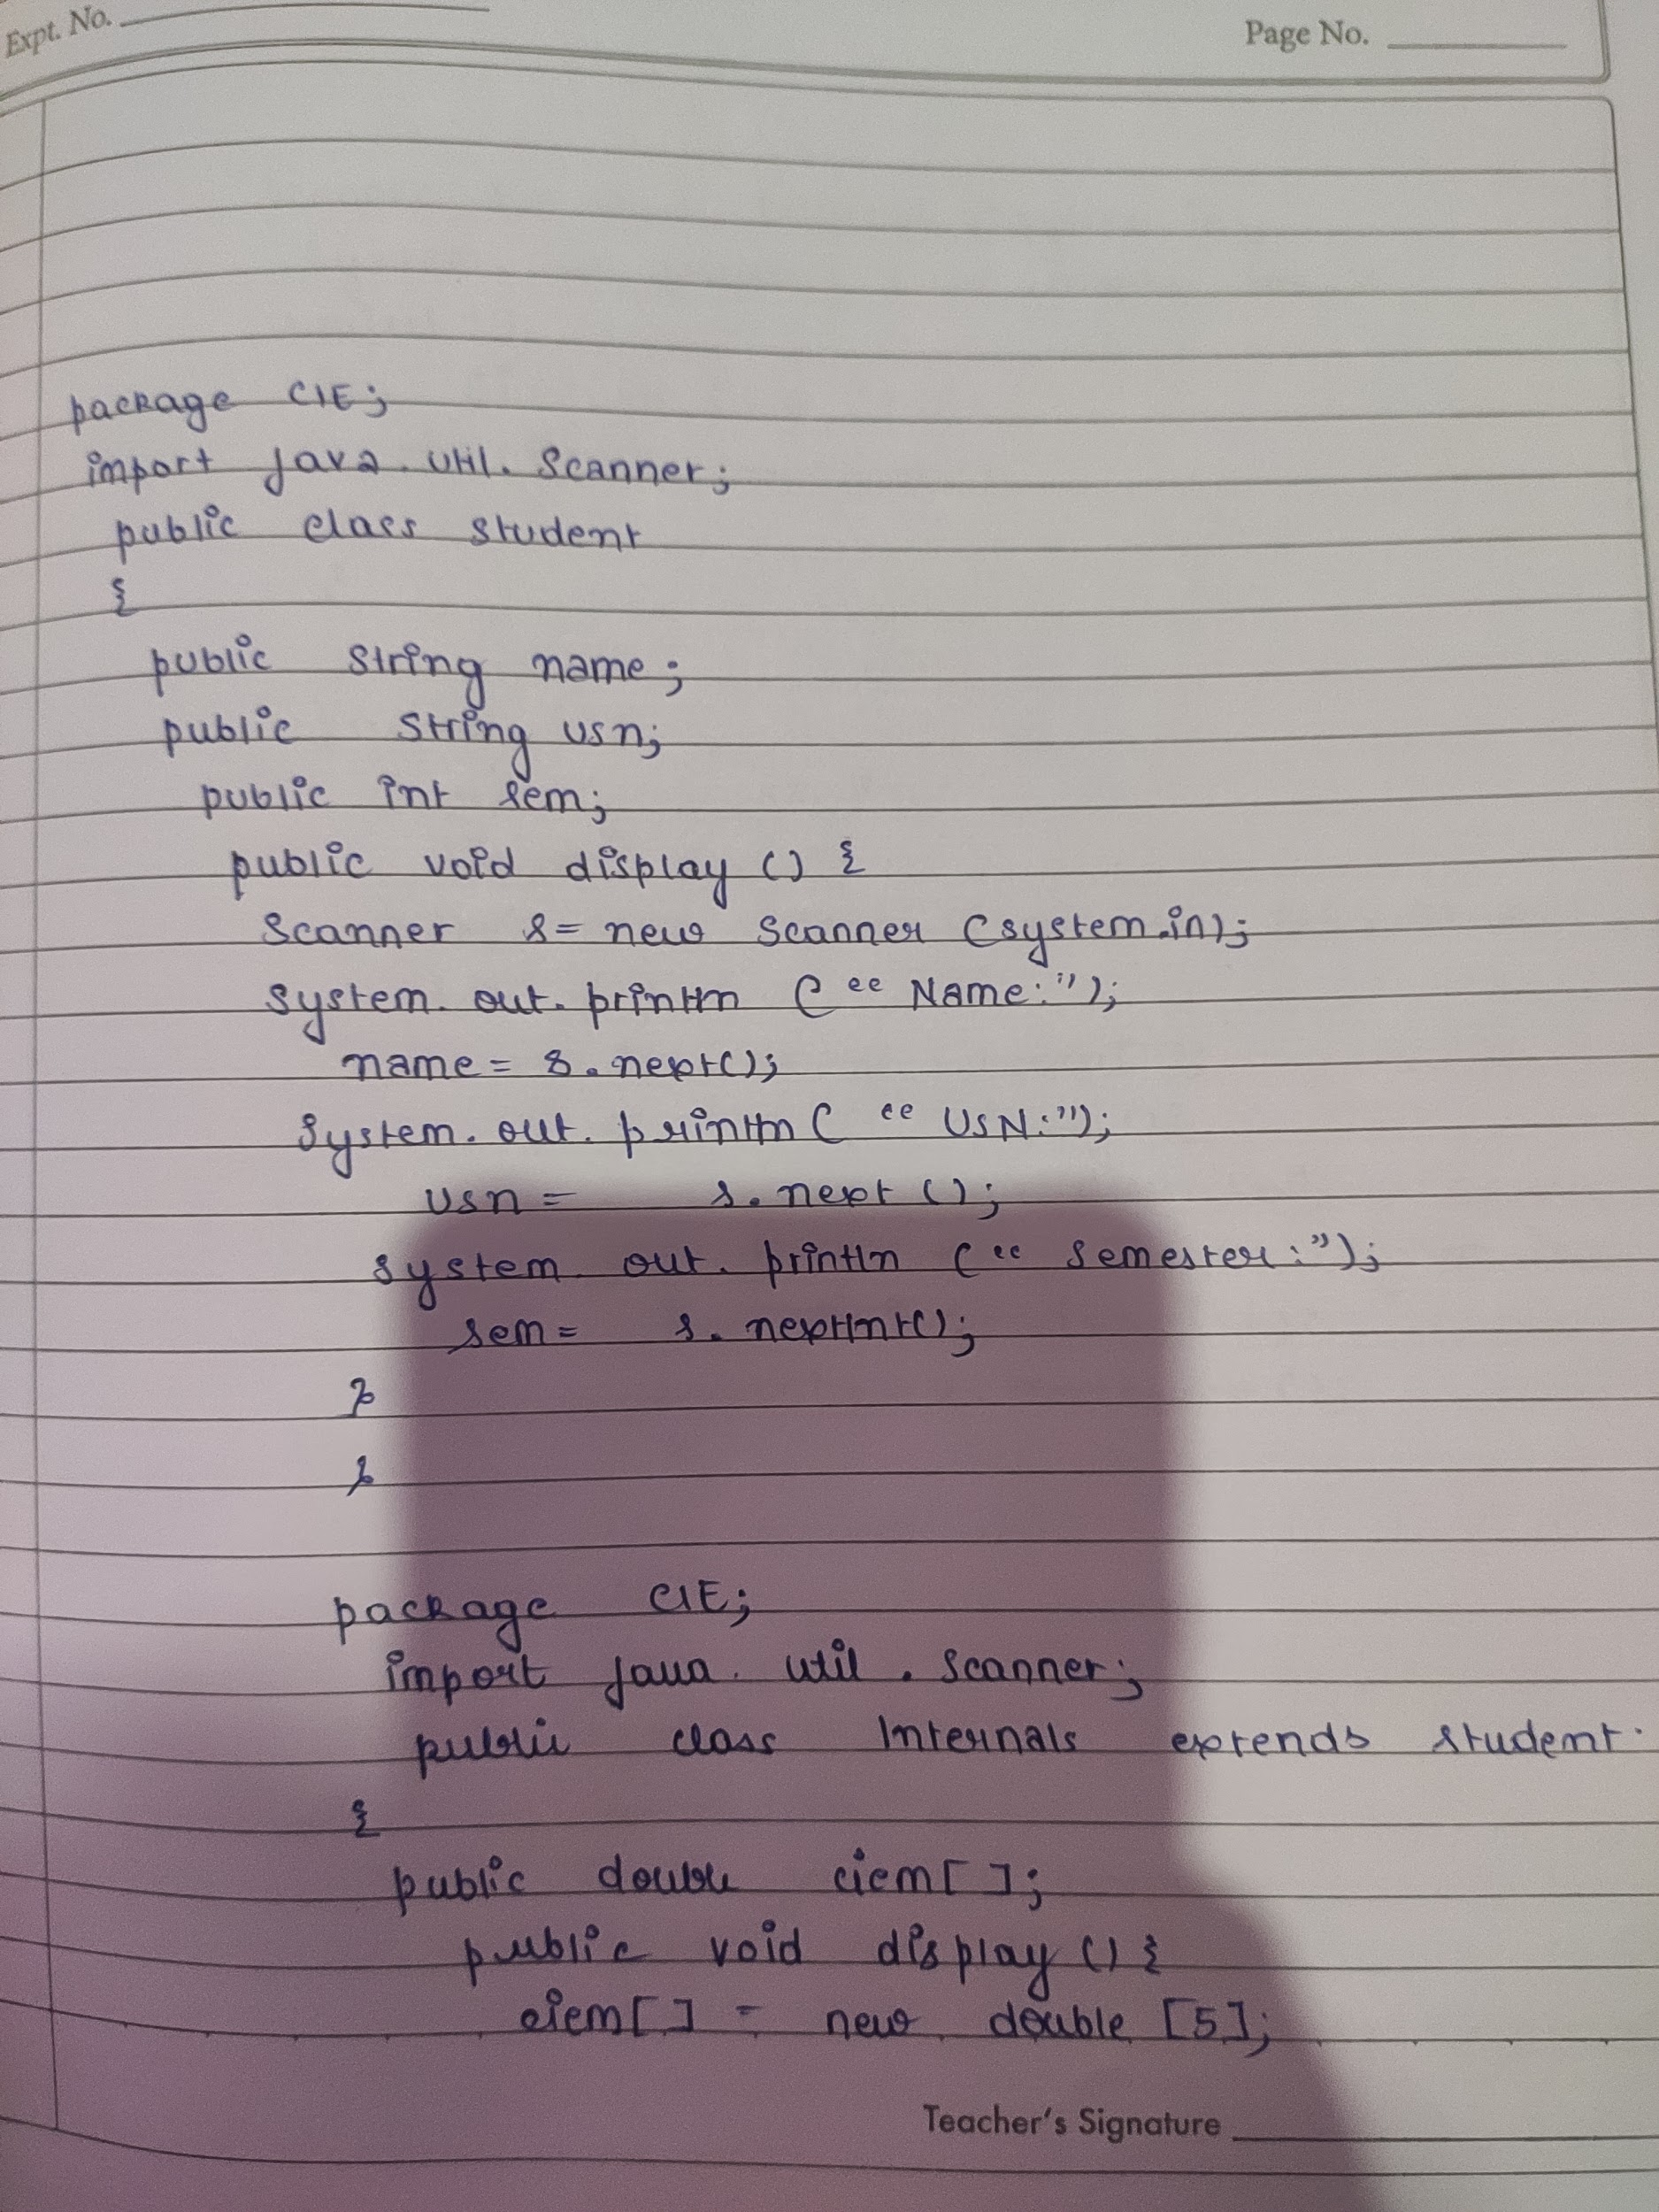 Expt. No.
Page No.
package CIE;
import java.util.Scanner;
public class Student
{
public String name;
public String usn;
public int sem;
public void display () {
Scanner s= new Scanner (system.in);
System.out.println (“Name:”);
name= s.next();
System.out.println (“USN:”);
usn= s.next ();
System.out.println (“Semester:”);
sem= s.nextInt();
}
}
package CIE;
import java.util.Scanner;
public class Internals extends Student.
{
public double ciem[ ];
public void display () {
ciem[ ] = new double [5];
Teacher's Signature